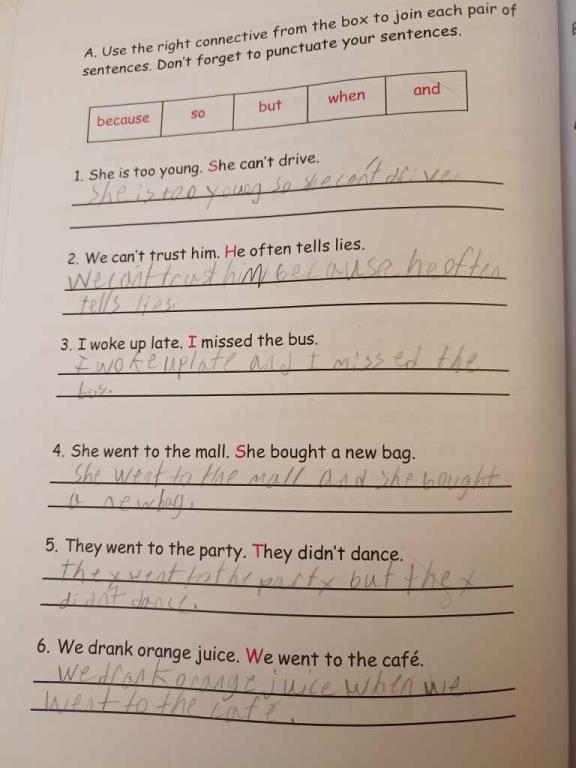 A. Use the right connective from the box to join each pair of
sentences. Don't forget to punctuate your sentences.
because so but when and
1. She is too young. She can't drive.
She is too young so she can't drive.
2. We can't trust him. He often tells lies.
We can't trust him because he often
tells lies.
3. I woke up late. I missed the bus.
I woke up late and I missed the
bus.
4. She went to the mall. She bought a new bag.
She went to the mall and she bought
a new bag.
5. They went to the party. They didn't dance.
they went to the party but they
didn't dance.
6. We drank orange juice. We went to the café.
We drank orange juice when we
went to the café.